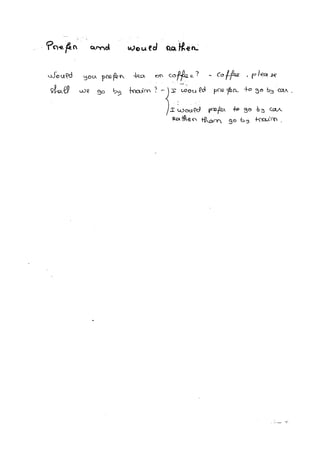 Prefer and would rather
Would you prefer tea or coffee? - Coffee, please
Shall we go by train? - I would prefer to go by car.
I would prefer to go by car
rather than go by train.